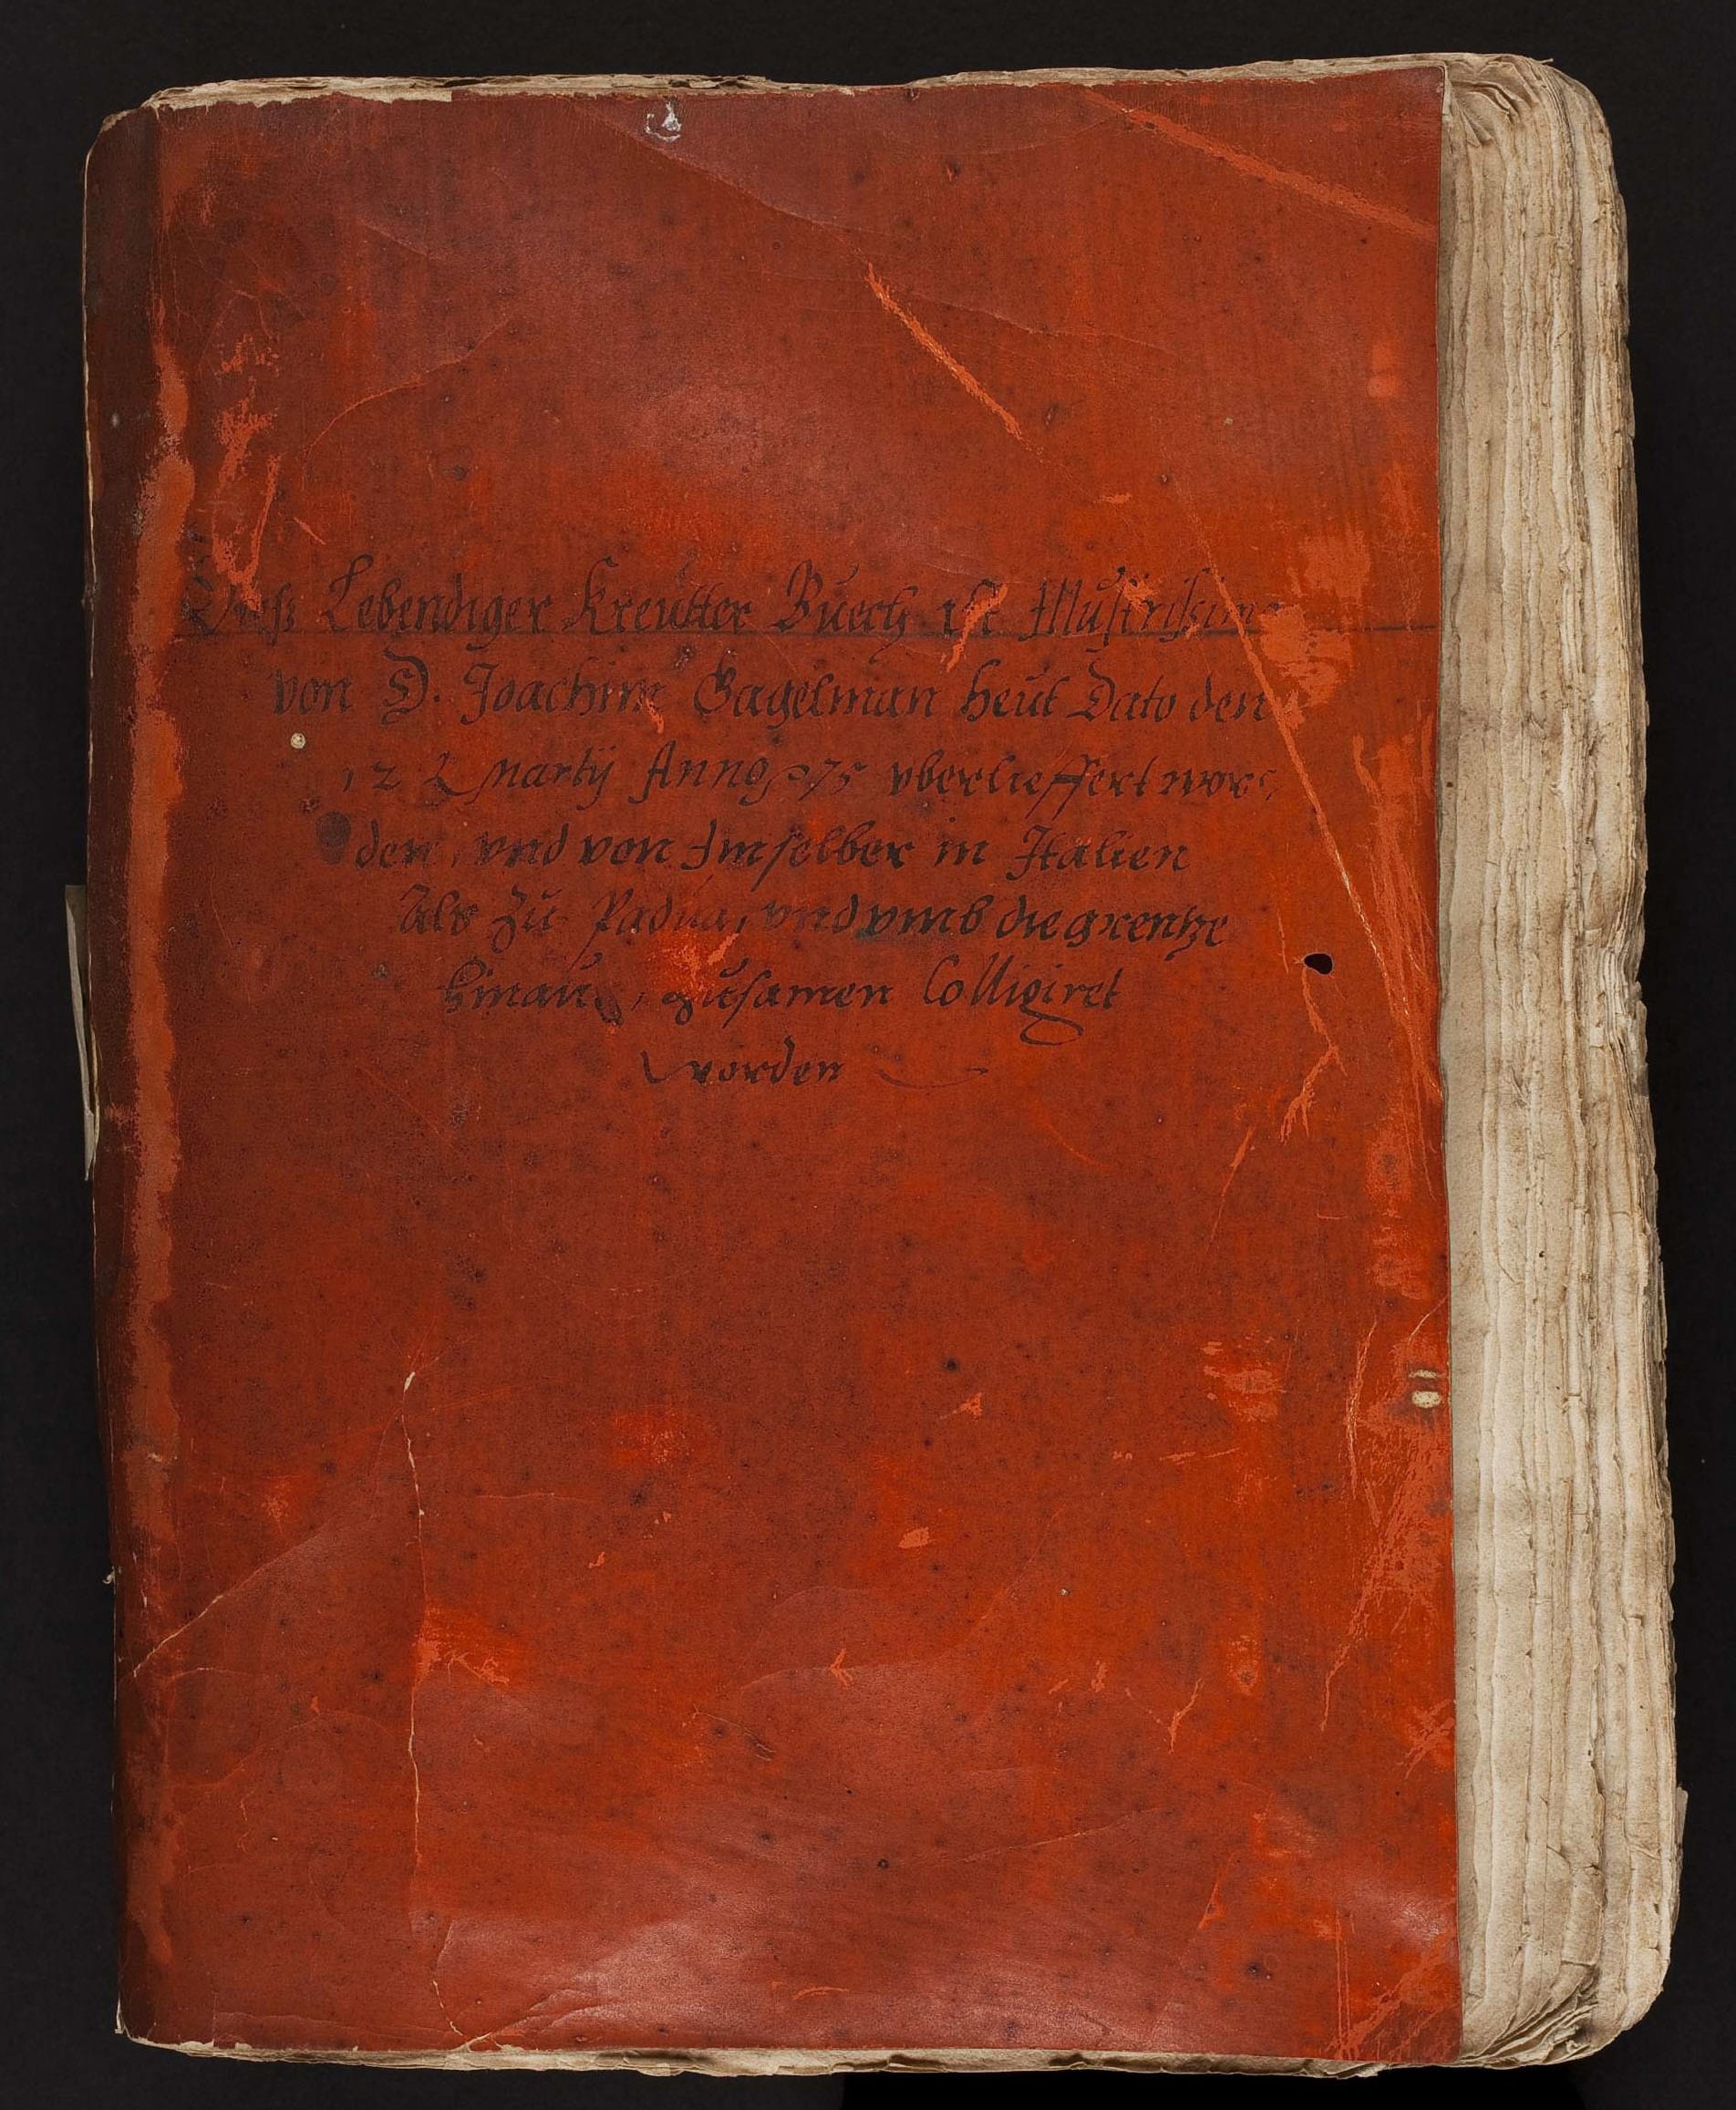 Diß Lebendiger Kreutter Buech ist Illustrissimo
von D. Joachim Gagelman heut Dato den
12 Martij Anno 75 vberlieffert wor⸗
den, vnd von Imselber in Italien
Als zu Padua, vnd vmb die grentze
hinauß, zusamen Colligiret
worden